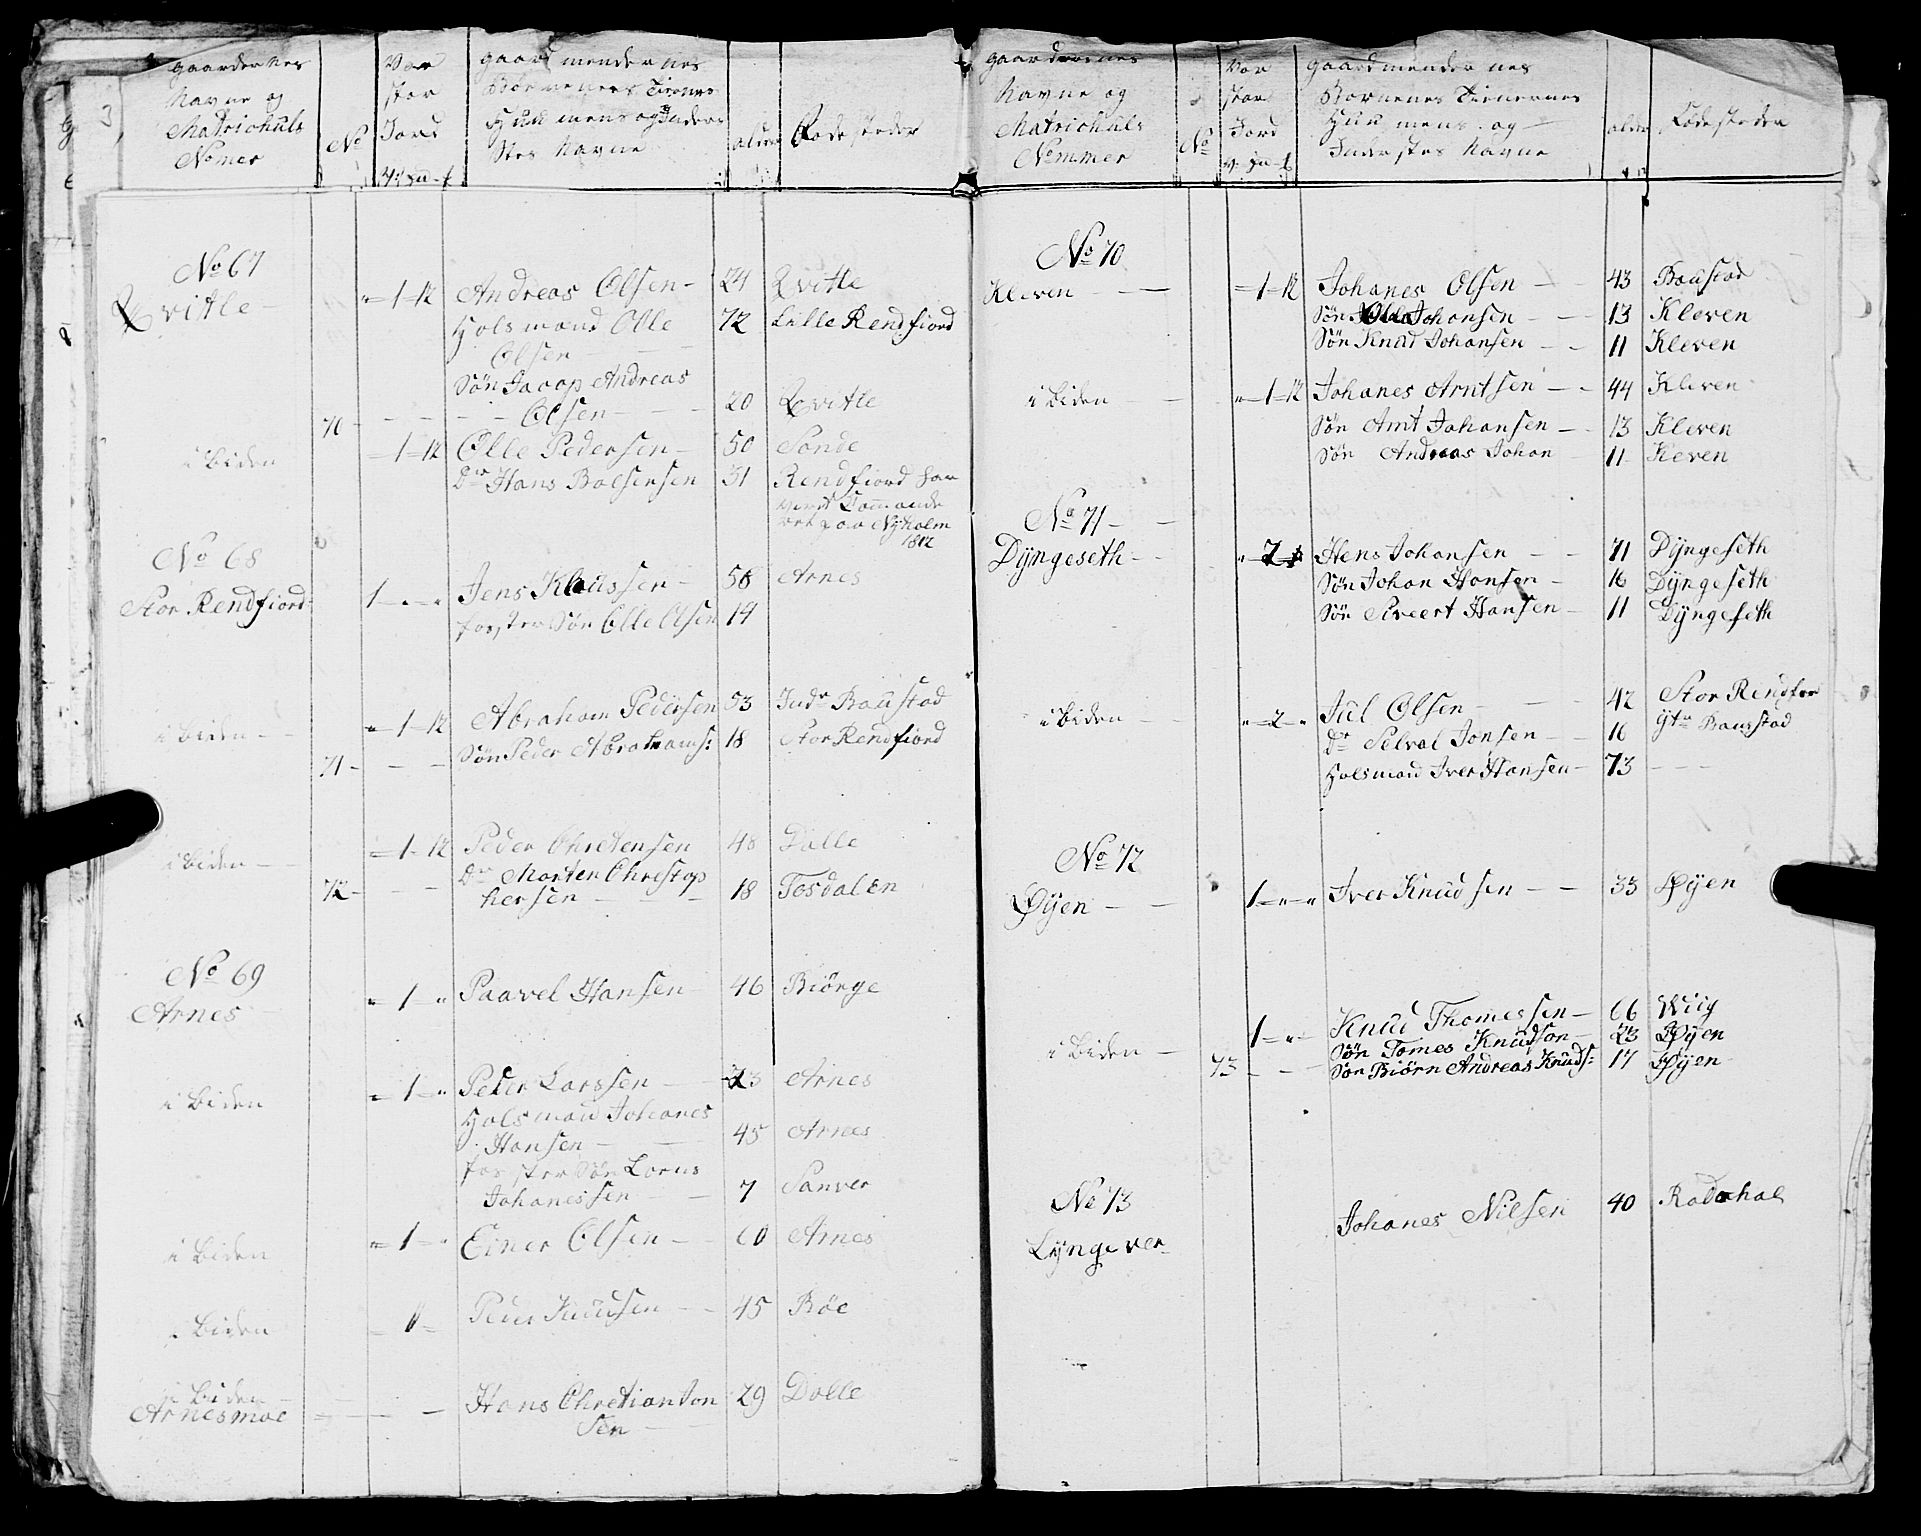 gaardernes
Navne og
Matrichuls
Nomer
No
Vor
stor
Jord
gaard mendernes
Børnenes Tienes
Huus mens og Inder
Stes Navne
alder
Fødesteder
No 67
Qvitle
" 1 12 Andreas Olsen 24 Qvitle
Holsmand Olle 72 Lille Rendfiord
Olsen
Søn Jacop Andreas
70 Olsen 20 Qvitle
i Biden 1 12 Olle Pedersen 50 Sande
Dr Hans Balsersen 31 Rendfiord har
verit Commande
ret paa Nyholm
1812
No 68
Stor Rendfiord 1 " " Jens Klaussen 58 Arnes
foster Søn Olle Olsen 14
i Biden " 1 12 Abraham Pedersen 53 Indr Baustad
71 Søn Peder Abrahams: 18 Stor Rendfiord
i Biden 1 12 Peder Chretensen 48 Dalle
72 Dr Morten Chrestop
hersen 18 Tosdalen
No 69
Arnes " 1 " Paavel Hansen 46 Biørge
i Biden 1 " Peder Larssen 23 Arnes
Holsmand Johanes
Hansen 45 Arnes
foster Søn Lorns
Johanessen 7 Sanver
i Biden " 1 " Einer Olsen 60 Arnes
i Biden Peder Knudsen 45 Røe
i Biden
Arnesmoe Hans Chretian Jon 29 Dalle
sen
gaardernes
Navne og
Matrichuls
Nommer
No
Vor
stor
Jord
gaardmendernes
Børnenes Tienernes
Huus mens og
Inderstes Navne
alder
Fødesteder
No 70
Kleven 1 12 Johanes Olsen 43 Baustad
Søn Olle Johansen 13 Kleven
Søn Knud Johansen 11 Kleven
i Biden " 1 12 Johanes Arntsen 44 Kleven
Søn Arnt Johansen 13 Kleven
Søn Andreas Johan 11 Kleven
No 71
Dÿngeseth " 2 Hens Johansen 71 Dÿngeseth
Søn Johan Hansen 16 Dÿngeseth
Søn Sivert Hansen 11 Dÿngeseth
i Biden " 2 " Jul Olsen 42 Stor Rendfor
Dr Selval Jonsen 16 Ytr Baustad
Holsmand Iver Hansen 73
No 72
Øÿen 1 " " Iver Knudsen 33 Øÿen
i Biden 1 " Knud Thomessen 66 Wiig
Søn Tomes Knudson 23 Øÿen
73 Søn Biørn Andreas Knuds: 17 Øÿen
No 73
Lÿngever Johanes Nilsen 40 Rødahal